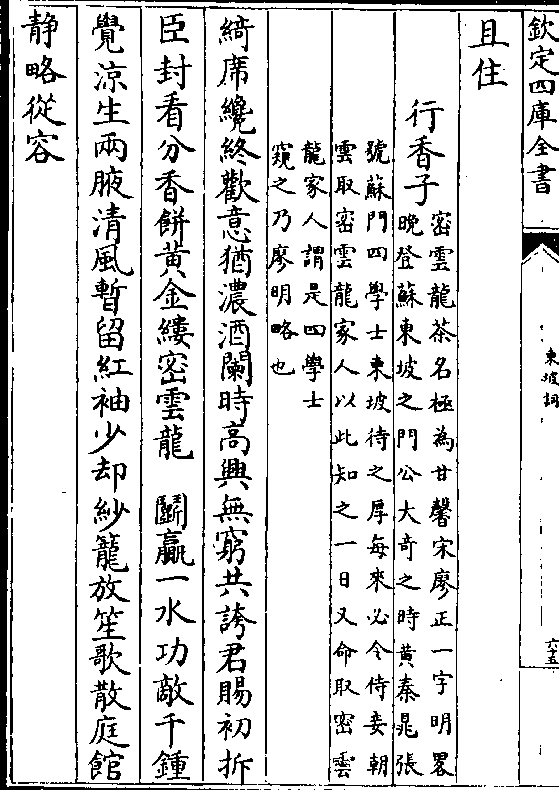 欽定四庫全書
東坡詞
六十五
且住
行香子
密雲龍茶名極為甘馨宋廖正一字明畧
晚登蘇東坡之門公大奇之時黄秦晁張
號蘇門四學士東坡待之厚每來必令侍妾朝
雲取密雲龍家人以此知之一日又命取密雲
龍家人謂是四學士
窺之乃廖明略也
綺席纔終歡意猶濃酒闌時高興無窮共誇君賜初拆
臣封看分香餅黄金縷密雲龍　鬭贏一水功敵千鍾
覺涼生兩腋清風暫留紅袖少却紗籠放笙歌散庭館
静略從容